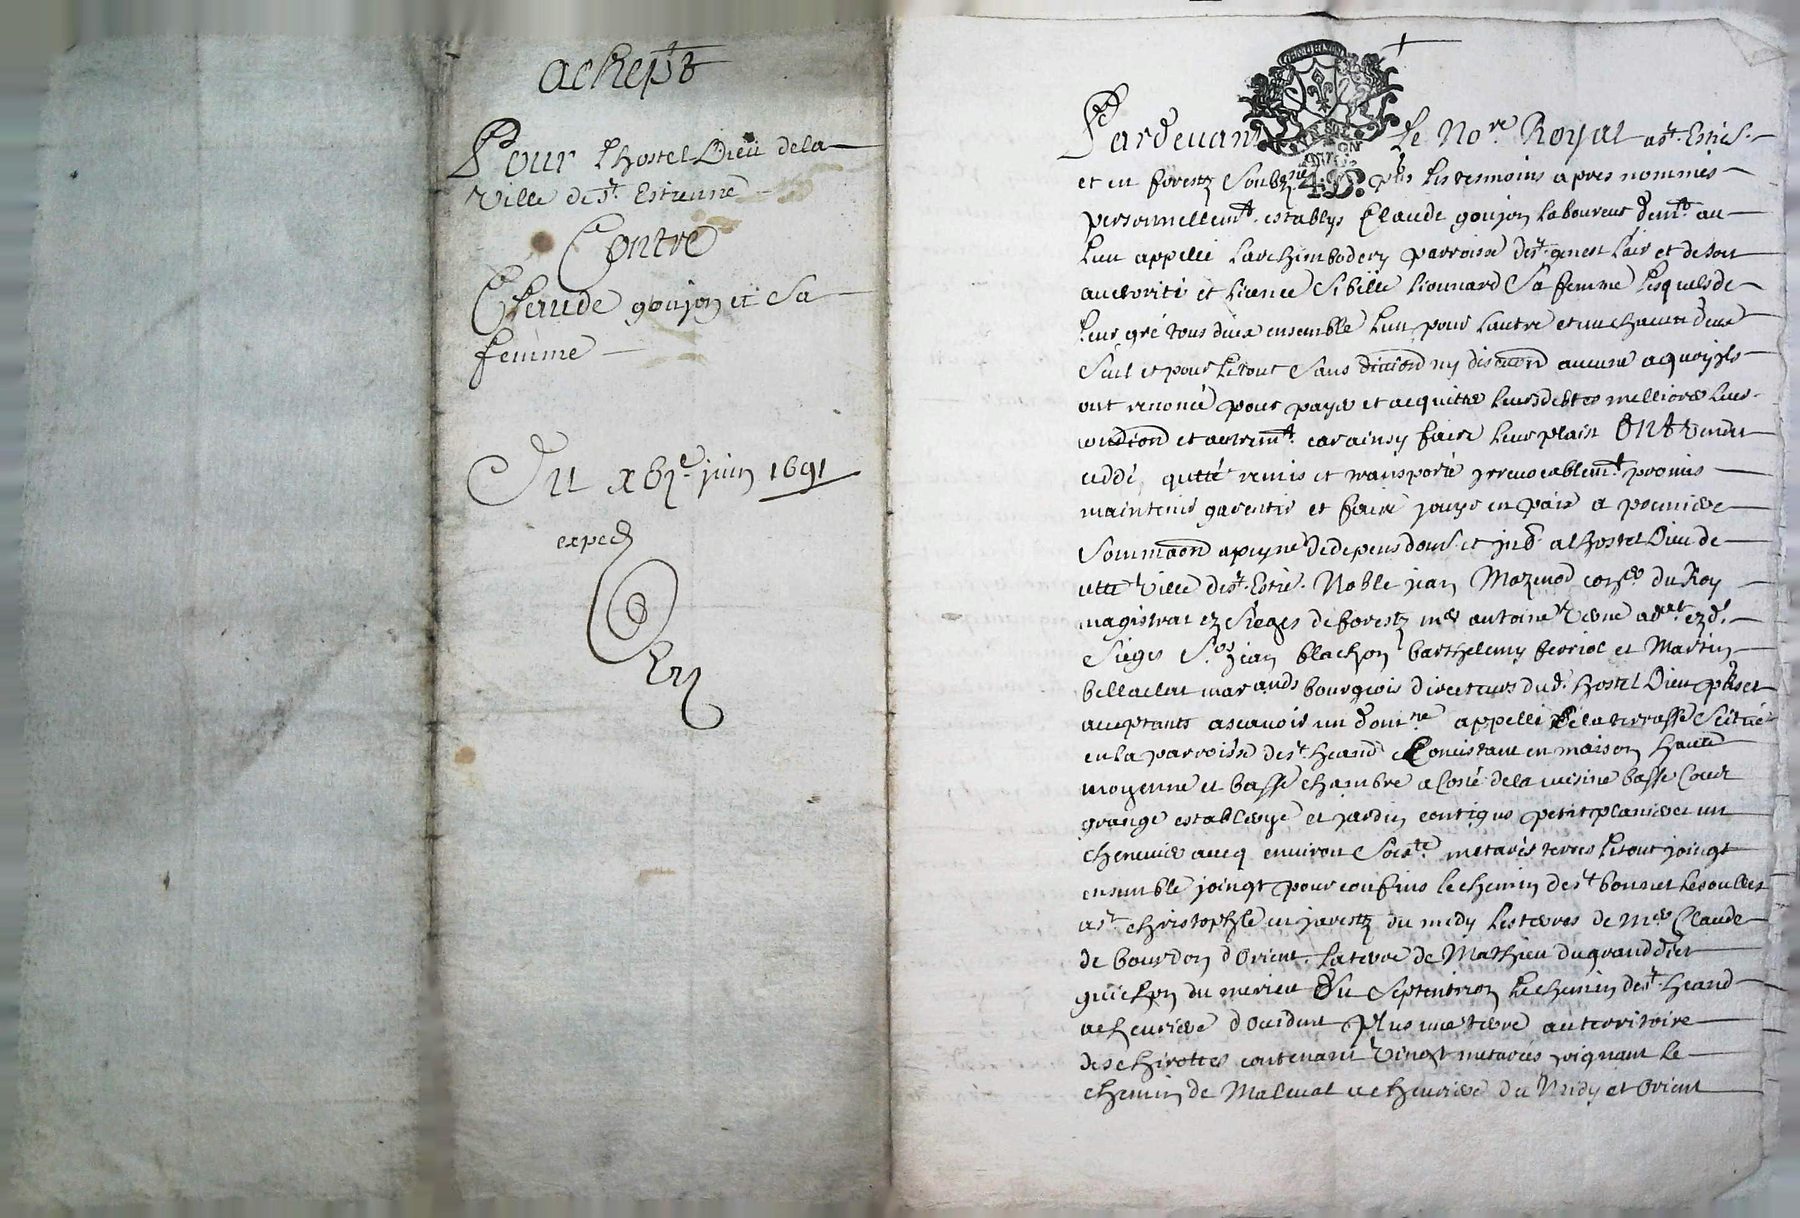 achept
Pour lhostel Dieu de la
Ville de St. Estienne
Contre
Claude goujon et sa
femme
Du xbje juin 1691
exped
Pardevant Le Nore Royal a St. Estie.
et en forestz Soubzne pns Les tesmoins apres nommes
personnellemt. establys Claude goujon laboureur demt. au
lieu appellé Larchimbodery parroisse de St. genest Lair et de son
auctorité et licence Sibille Lionnard Sa femme Lesquels de
leur gré tous deux ensemble Lun pour Lautre et un chacun deux
Seul et pour Le tout Sans division ny discution aucune a quoy jls
ont renoncé pour payer et acquitter leurs debtes melliorer leur
condion et autremt. car ainsy faire leur plait Ont vendu
ceddé, quitté remis et transporté jrrevocablemt. promis
maintenir garentir et faire jouyr en paix a premiere
Sommaon a peyne de depens dom. et jnt. a lhostel Dieu de
cette ville de St. Estie. Noble jean Mazenod coner du Roy
magistrat ez Sieges de forestz me antoine Verne advat ezd.
Sieges Srs jean blachon barthelemy ferriol et Martin
bellaclat marands bourgeois directeurs dud. hostel Dieu pnset
acceptants ascavoir un domne appellé de la terrasse Scitué
en la parroisse de St. heand Concistant en maison haute
moyenne et basse chambre a Costé de la cuisine basse Cour
grange establerye et jardin contigus petit planier et un
chenevier avecq environ Soixte. metarés terres Le tout joingt
ensemble joingt pour confins le chemin de St bonnet Les oulles
a St. christophle en jarestz du midy Les terres de Me Claude
de bourdon dOrient. La terre de Mathieu du grand dict
guichon du mesieu Du Septentrion Le chemin de St. heand
a cheuriere dOccident Plus une terre au territoire
des chirottes contenant vingt metarées joignant Le
chemin de Maleval a cheuriere du Midy et Orient